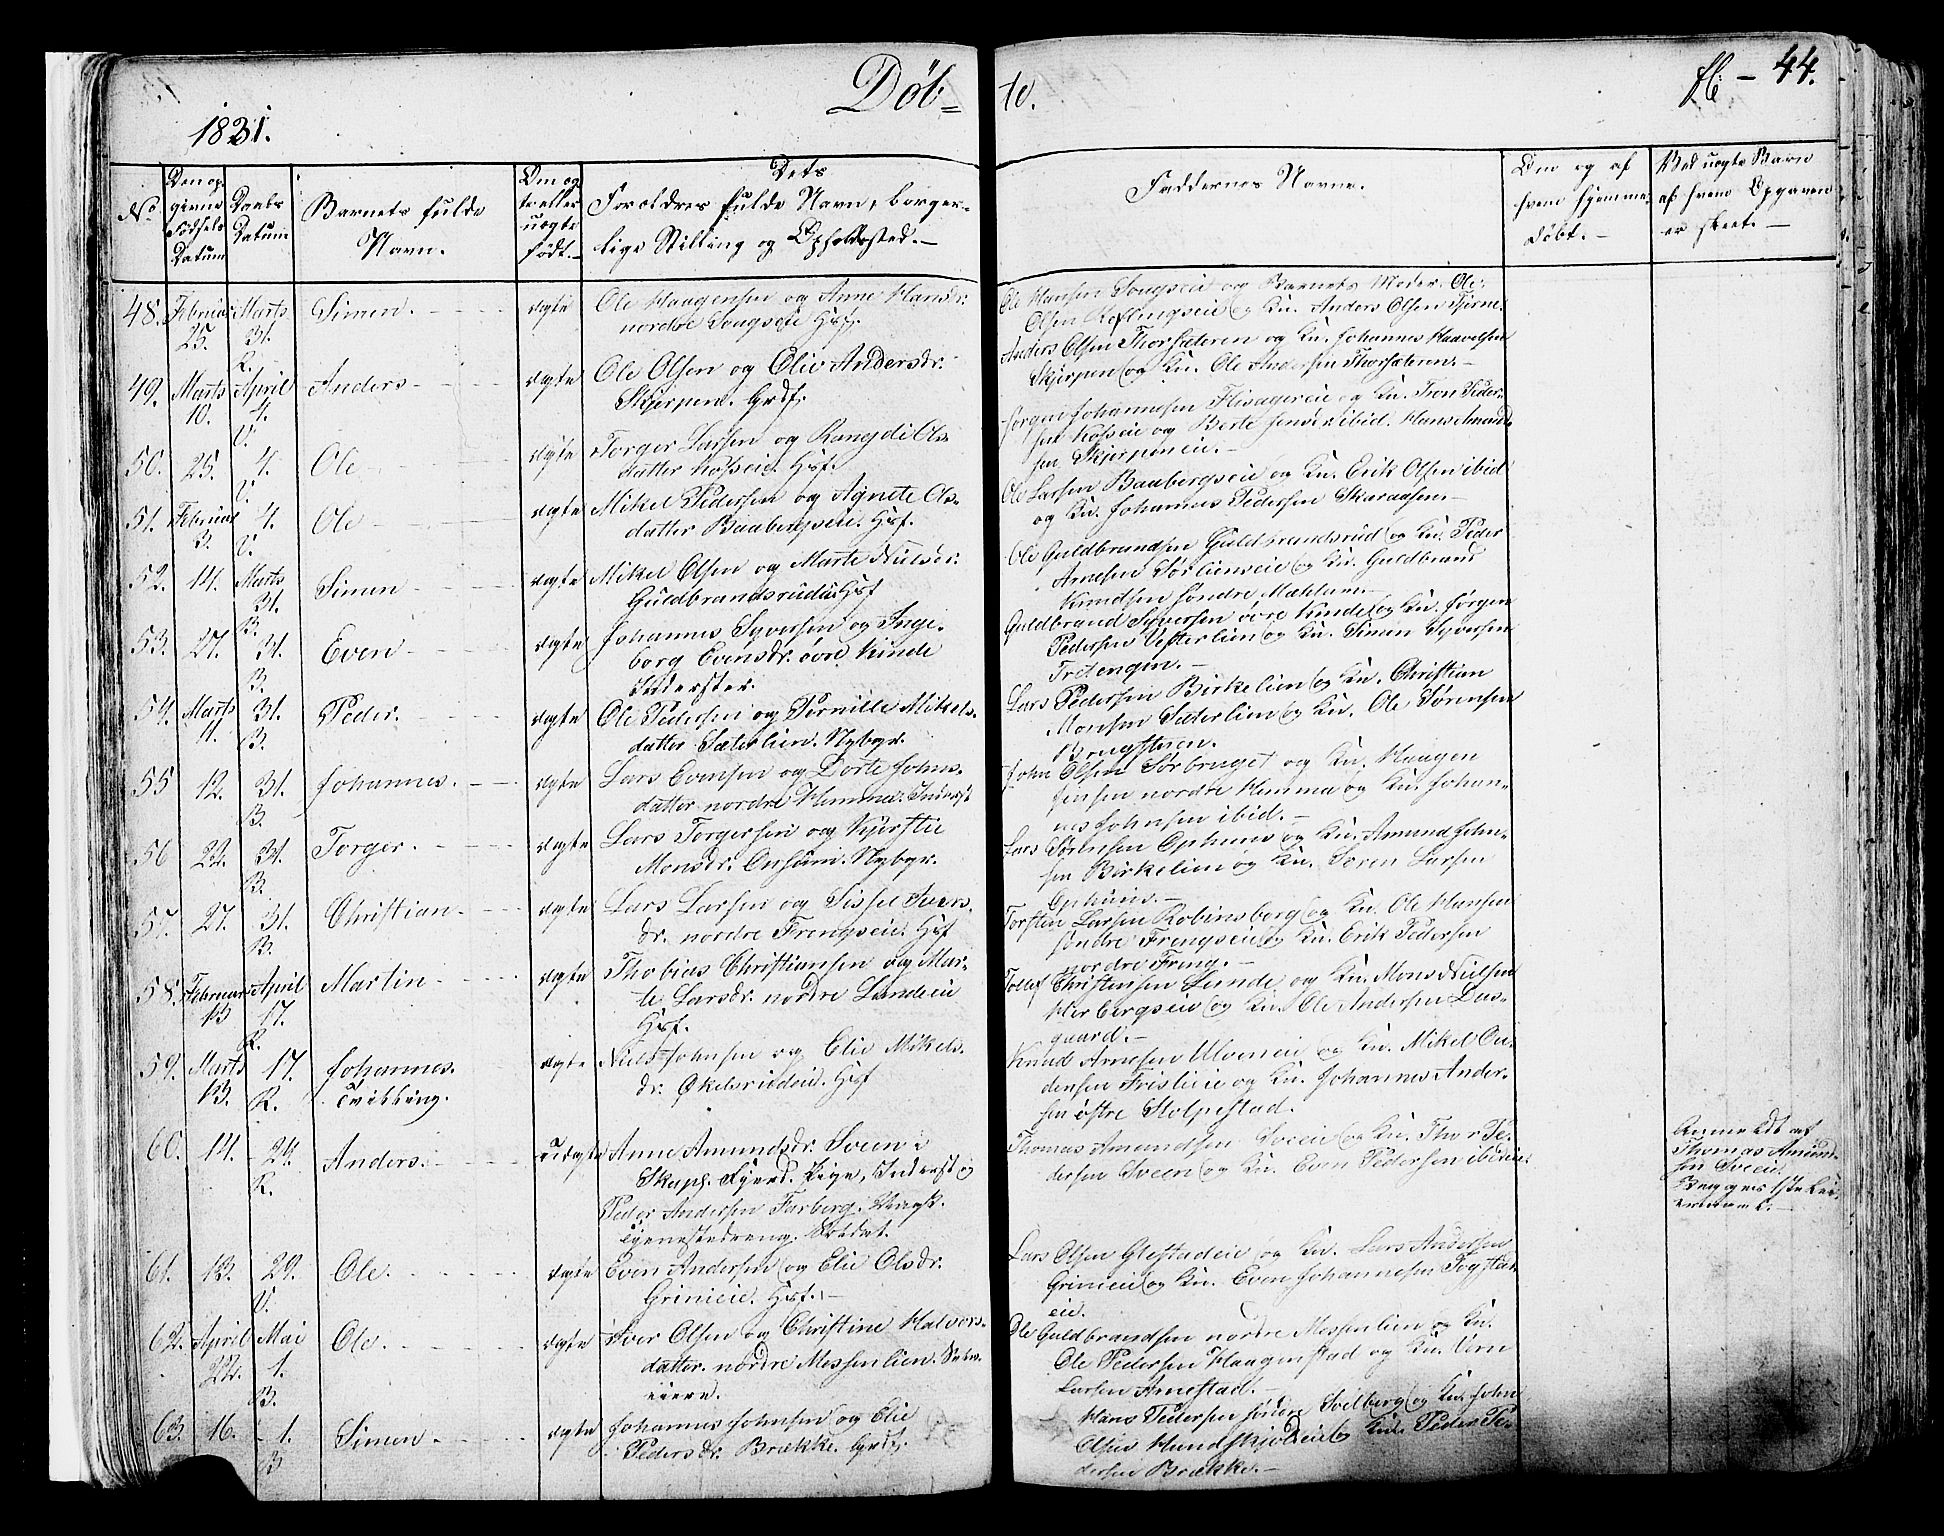 Døb-
te.
fl: - 44.
1831.
No
Den op-
givne
Fødsels
Datum
Daabs
Datum
Barnets fulde
Navn.
Om æg-
te eller
uægte
født.-
Dets
Forældres fulde Navn, borger-
lige Stilling og Opholdssted.-
Faddernes Navne.
Om og af
hvem hjemme-
døbt.-
Ved uægte Barn
af hvem Opgaven
er skeet.-
48. Februar 25. Marts 31. R. Simen. ægte
Ole Haagensen og Anne Hansdr.
nordre Hsf.
Ole Hansen og Barnets Moder. Ole
Olsen og Ku. Anders Olsen
49. Marts 10. April 4. V. Anders ægte
Ole Olsen og Oliv Andersdr.
Skjerpen. Grdf.
Anders Olsen Thorsæteren og Ku. Johannes Haavelsen
Skjerpen og Ku. Ole Andersen Thorsæteren.-
50. 25. 4. V. Ole ægte
Torger Larsen og Rangdi Ols-
datter Hsf.
Jørgen Johannesen og Ku. Iver Peder-
sen og Berte ibid. Hans Amund-
sen Skjerpeneie.-
51. Februar 3. 4. V. Ole ægte
Mikel Pedersen og Agnete Ols-
datter Baabergseie. Hsf.
Ole Larsen Baabergseie og Ku. Erik Olsen ibid
og Ku. Johannes Pedersen Skaraasen.-
52. 14. Marts 31. B. Simen ægte
Mikel Olsen og Marte Nielsdr.
Guldbrandsrudeie Hsf
Ole Guldbrandsen Guldbrandsrud og Ku. Peder
Arnesen Sørlienseie og Ku. Guldbrand
Knudsen søndre Mæhlum.-
53. 27. 31. B. Even ægte
Johannes Syversen og Inge-
borg Evensdr. øvre Kinde
Inderster.
Guldbrand Syversen øvre Kinde og Ku. Jørgen
Pedersen Vesterlien og Ku. Simen Syversen
Tretengen.-
54. Marts 11. 31. B. Peder. ægte
Ole Pedersen og Pernille Mikels-
datter Sæterlien. Nybgr.
Lars Pedersen Birkelien og Ku. Christian
Monsen Sæterlien og Ku. Ole Sørensen
55 12. 31. B. Johannes. ægte
Lars Evensen og Dorte Johns-
datter nordre Hemma. Inderst
John Olsen Sørbruget og Ku. Haagen
Jensen nordre Hemma og Ku. Johan-
nes Johnsen ibid.-
56 22. 31. B. Torger. ægte
Lars Torgersen og Kjerstie
Monsdr. Ophuus. Nybgr.
Lars Sørensen Ophuus og Ku. Amund John-
sen Birkelien og Ku. Søren Larsen
Ophuus.-
57. 27. 31. B. Christian. ægte
Lars Larsen og Sissel Svens-
dr. nordre Frengseie. Hsf
Torsten Larsen Robinsborg og Ku. Ole Hansen
søndre Frengseie og Ku. Erik Pedersen
nordre Freng.-
58. Februar 13 April 17. R. Martin ægte
Thobias Christiansen og Mar-
te Larsdr. nordre Lundeeie
Hsf.
Tollef Christensen Lunde og Ku. Mons Nielsen
Herbergseie og Ku. Ole Andersen Lus-
gaard.-
59. Marts 13. 17. R. Johannes. Tvilling. ægte
Niels Johnsen og Elie Mikels-
dr. Økelsrudeie. Hsf
Knud Arnesen Ulveneie og Ku. Mikel Ou-
densen Frislieie og Ku. Johannes Ander-
sen østre Stolpestad.
60. 14. - 24. R. Anders. uægte
Anne Amundsdr. Sveen i
Pige, Inderst og
Peder Andersen Farberg.
Tjenestedreng. Soldat.
Thomas Amundsen Sveeie og Ku. Thor Pe-
dersen Sveen og Ku. Even Pedersen ibid.
Anmeldt af
Thomas Amund-
sen Sveeie.
Begges 1ste Lei-
ermaal.-
61. 13. 29. V. Ole. ægte
Even Andersen og Elie Olsdr.
Grinieie. Hsf.-
Lars Olsen Glestadeie og Ku. Lars Andersen
Grinieie og Ku. Even Johannesen Togstad-
eie.
62. April 22. Mai 1. B. Ole. ægte
Iver Olsen og Christine Halvors-
datter. nordre Messenlien. Selv-
eiere.
Ole Guldbrandsen nordre Messenlien og Ku.
Ole Pedersen Haagenstad og Ku. Iver
Larsen Arnestad.-
63. 16. - 1. B Simen. ægte
Johannes Johnsen og Elie
Pedersdr. Brække. Grdf.
Hans Pedersen søndre Svelberg og Ku. John
Olsen Hundskjoldeie og Ku. Peder Pe-
dersen Brække.-